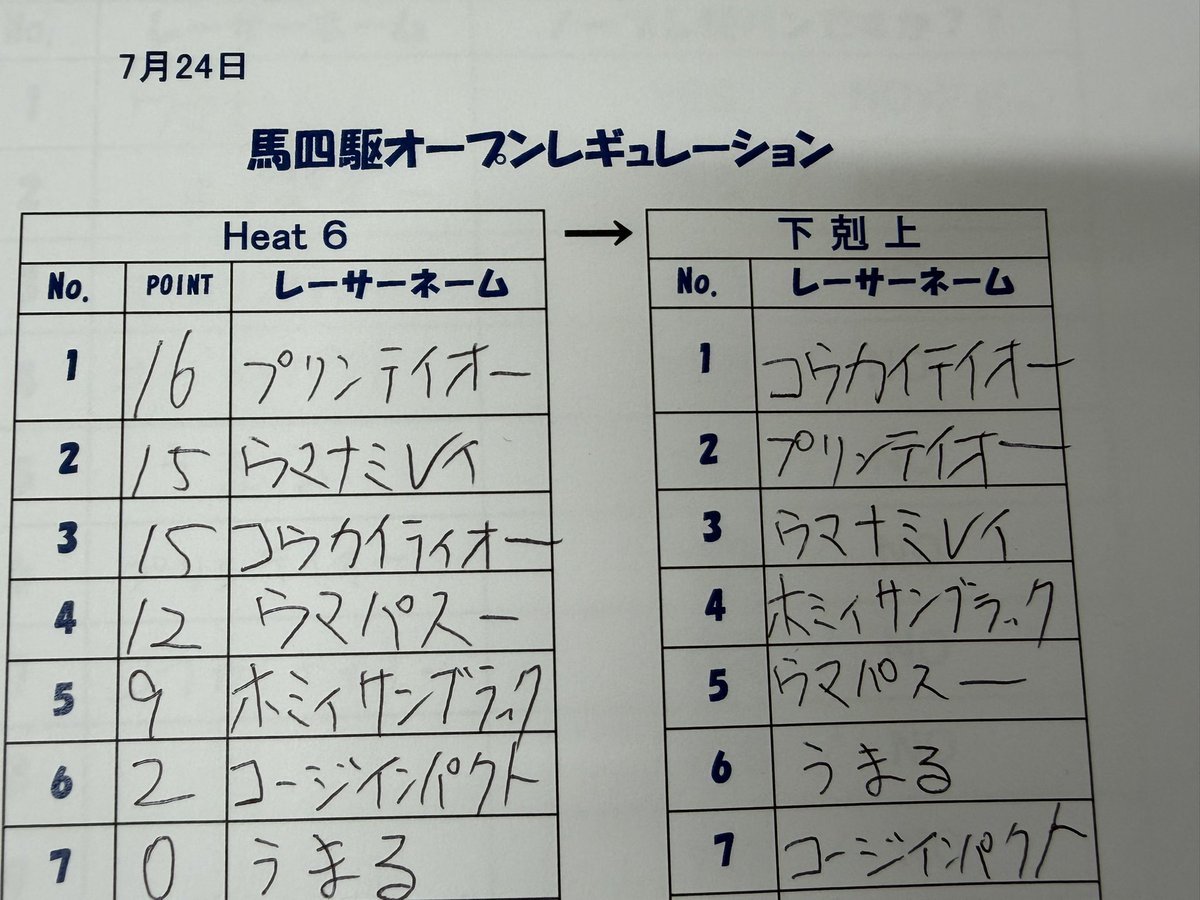 7月24日
馬四駆オープンレギュレーション
Heat 6 → 下剋上
No. POINT レーサーネーム No. レーサーネーム
1 16 プリンテイオー 1 コウカイテイオー
2 15 ウマナミレイ 2 プリンテイオー
3 15 コウカイティオー 3 ウマナミレイ
4 12 ウマパスー 4 ホミィサンブラック
5 9 ホミィサンブラック 5 ウマパスー
6 2 コージインパクト 6 うまる
7 0 うまる 7 コージインパクト